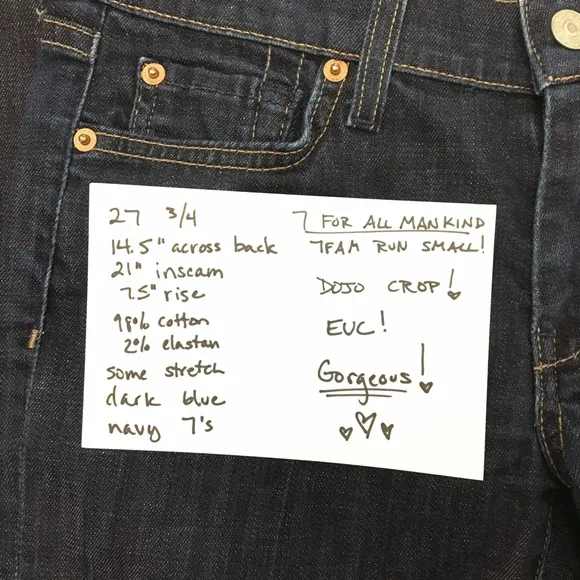 27 3/4
14.5" across back
21" inseam
7.5" rise
98% cotton
2% elastan
some stretch
dark blue
navy 7's
7 FOR ALL MANKIND
7FAM RUN SMALL!
DOJO CROP!
EUC!
Gorgeous!